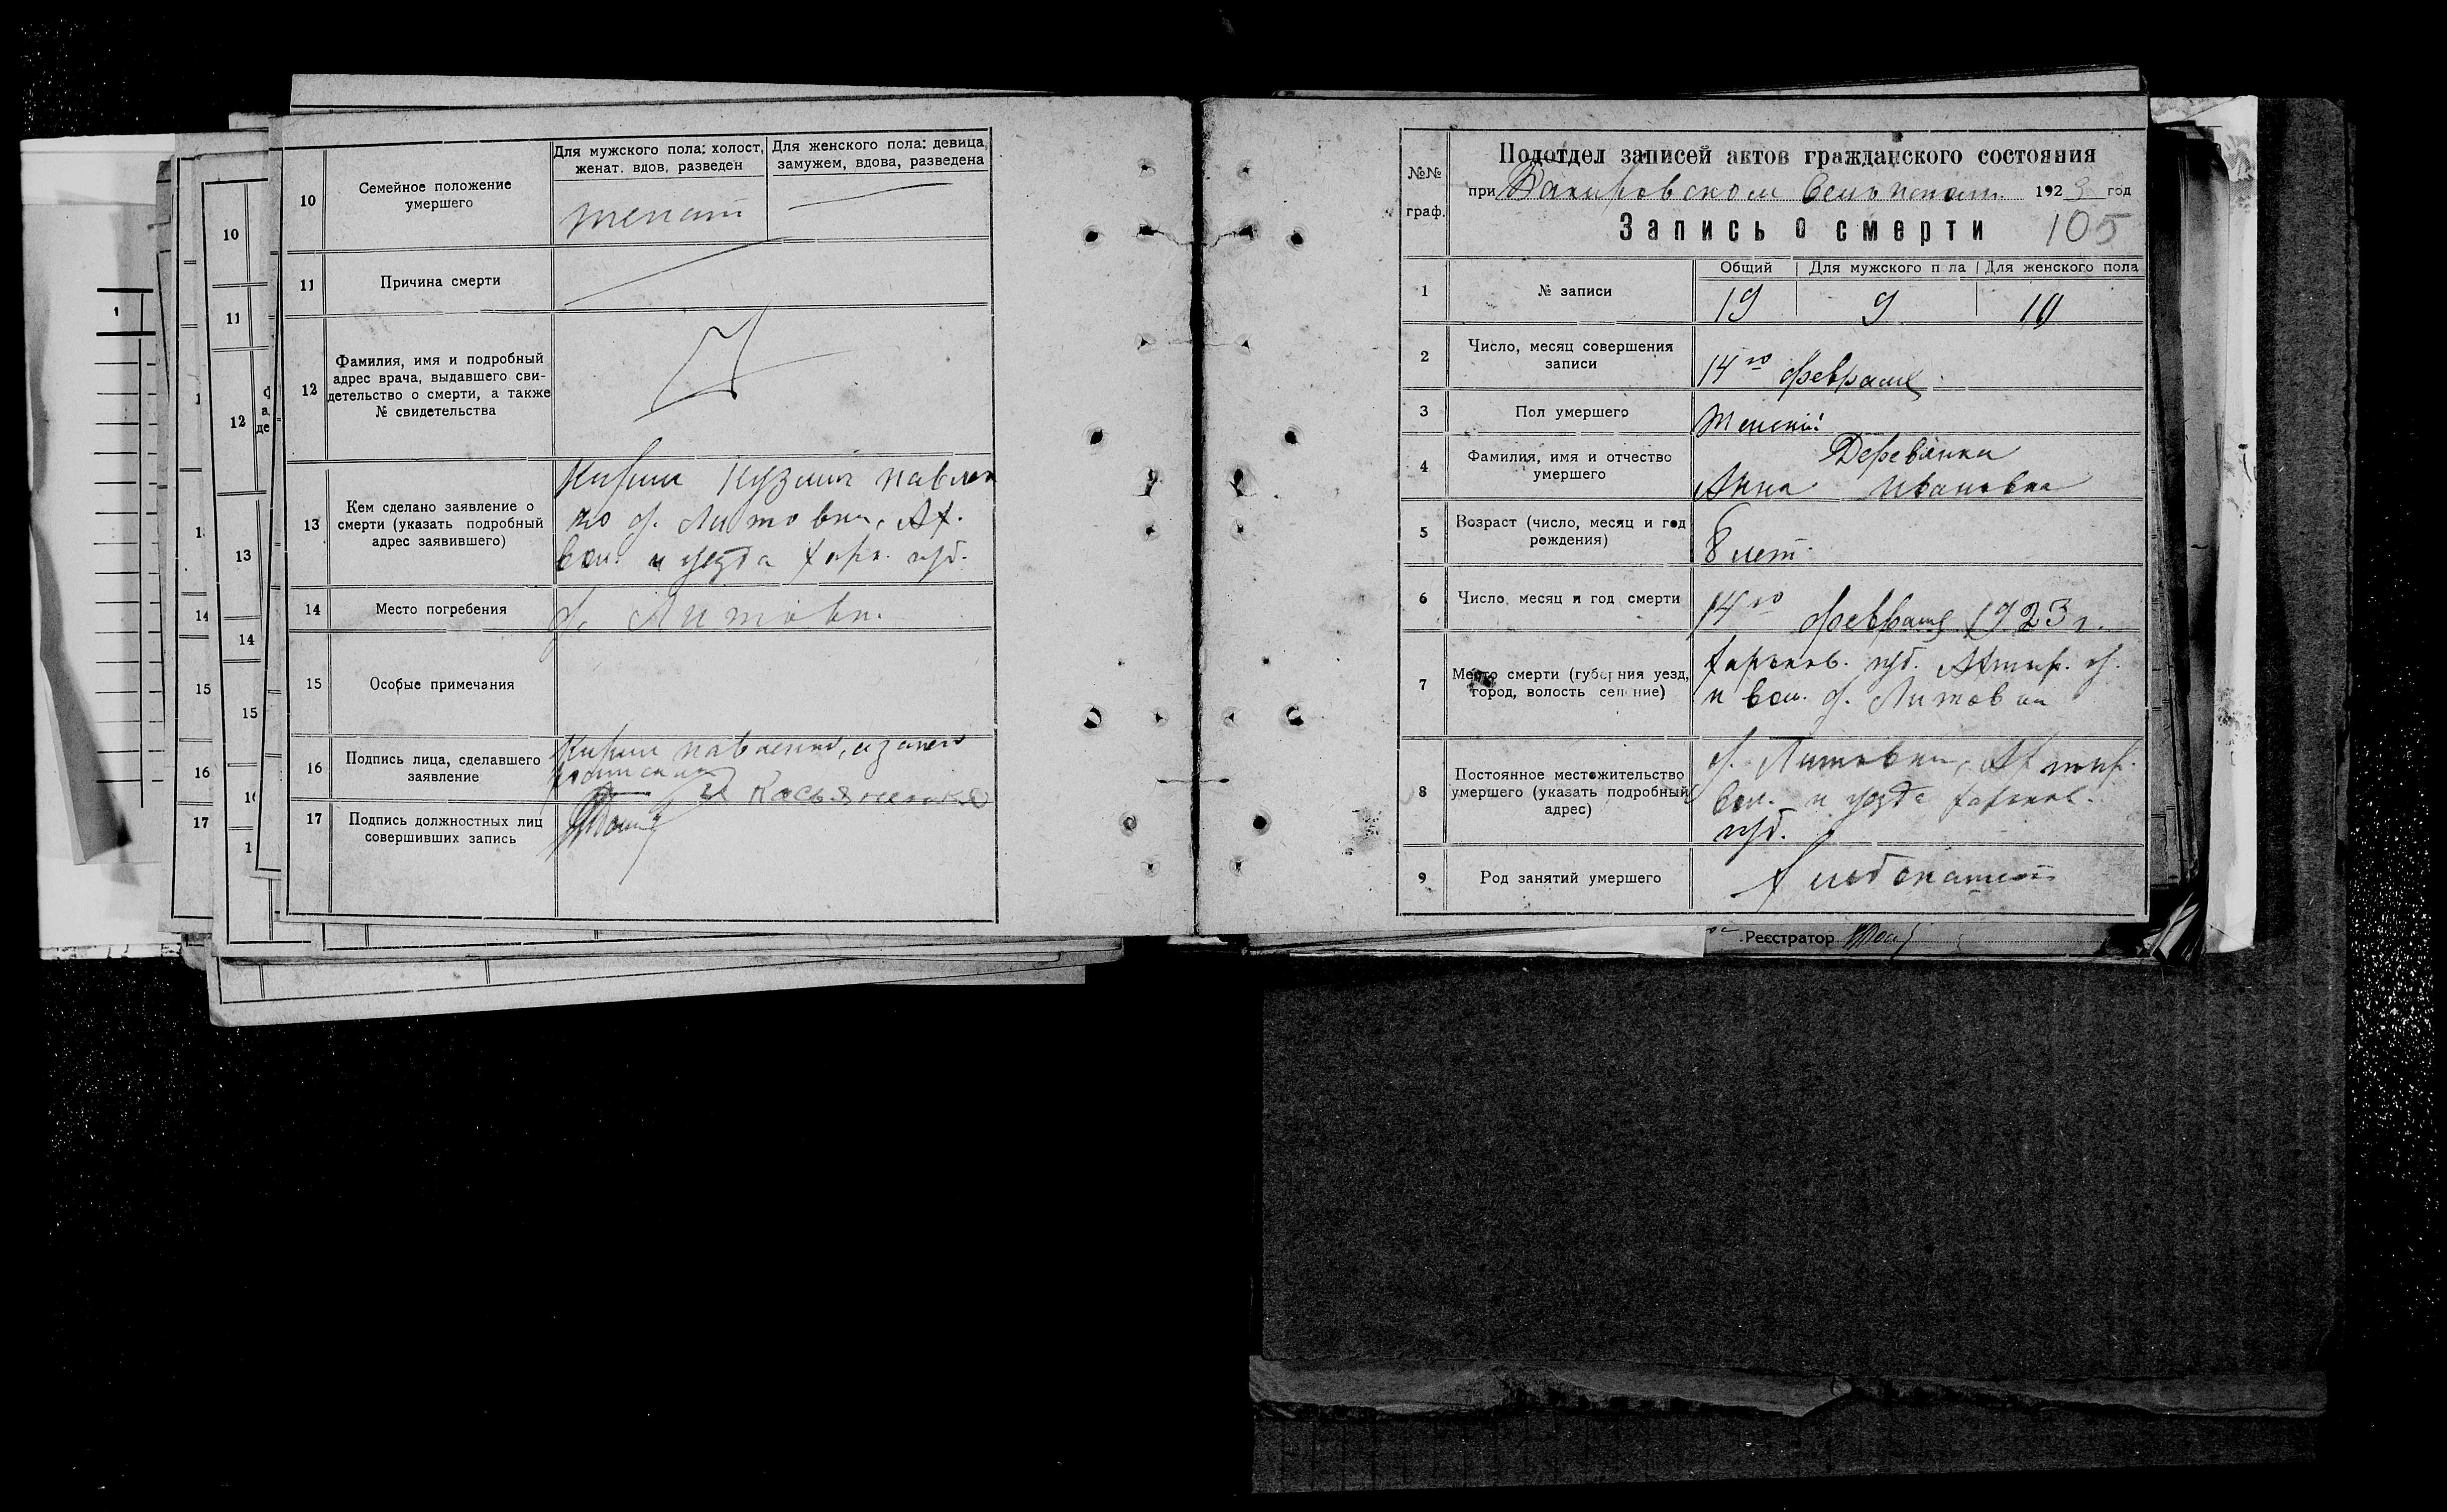 10
Семейное положение
умершего
Для мужского пола: холост,
женат. вдов, разведен
Для женского пола: девица,
замужем, вдова, разведена
женат
11
Причина смерти
12
Фамилия, имя и подробный
адрес врача, выдавшего сви-
детельство о смерти, а также
№ свидетельства
13
Кем сделано заявление о
смерти (указать подробный
адрес заявившего)
Кирил Кузмич Павлен
ко х. Литовки, Ах.
вол. и уезда Харк. губ.
14
Место погребения
х. Литовки.
15
Особые примечания
16
Подпись лица, сделавшего
заявление
Кирил Павленко, а за него
росписался
И Косьяненко
17
Подпись должностных лиц
совершивших запись
10
11
12
13
14
15
16
17
№№
граф.
Подотдел записей актов гражданского состояния
при 1923 год
Запись о смерти
105
1
№ записи
Общий
Для мужского п ла
Для женского пола
19
9
10
2
Число, месяц совершения
записи
14го февраля
3
Пол умершего
Женский
4
Фамилия, имя и отчество
умершего
Деревянки
Анна Ивановна
5
Возраст (число, месяц и год
рождения)
8 лет.
6
Число месяц и год смерти
14го февраля 1923 г.
7
Место смерти (губерния уезд,
город, волость селение)
Харьков. губ. Ахтыр. у.
и вол. х. Литовки
8
Постоянное местожительство
умершего (указать подробный
адрес)
х. Литовки, Ахтыр.
вол. и уезда Харьков.
губ.
9
Род занятий умершего
Хлебопашест
Реєстратор